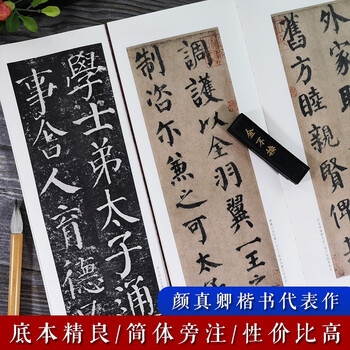 外家
舊方睦親賢俾
調護以全羽翼一王之
制咨尔兼之可太
學士弟太子通
事舍人育德
金不換
颜真卿楷书代表作
底本精良/简体旁注/性价比高